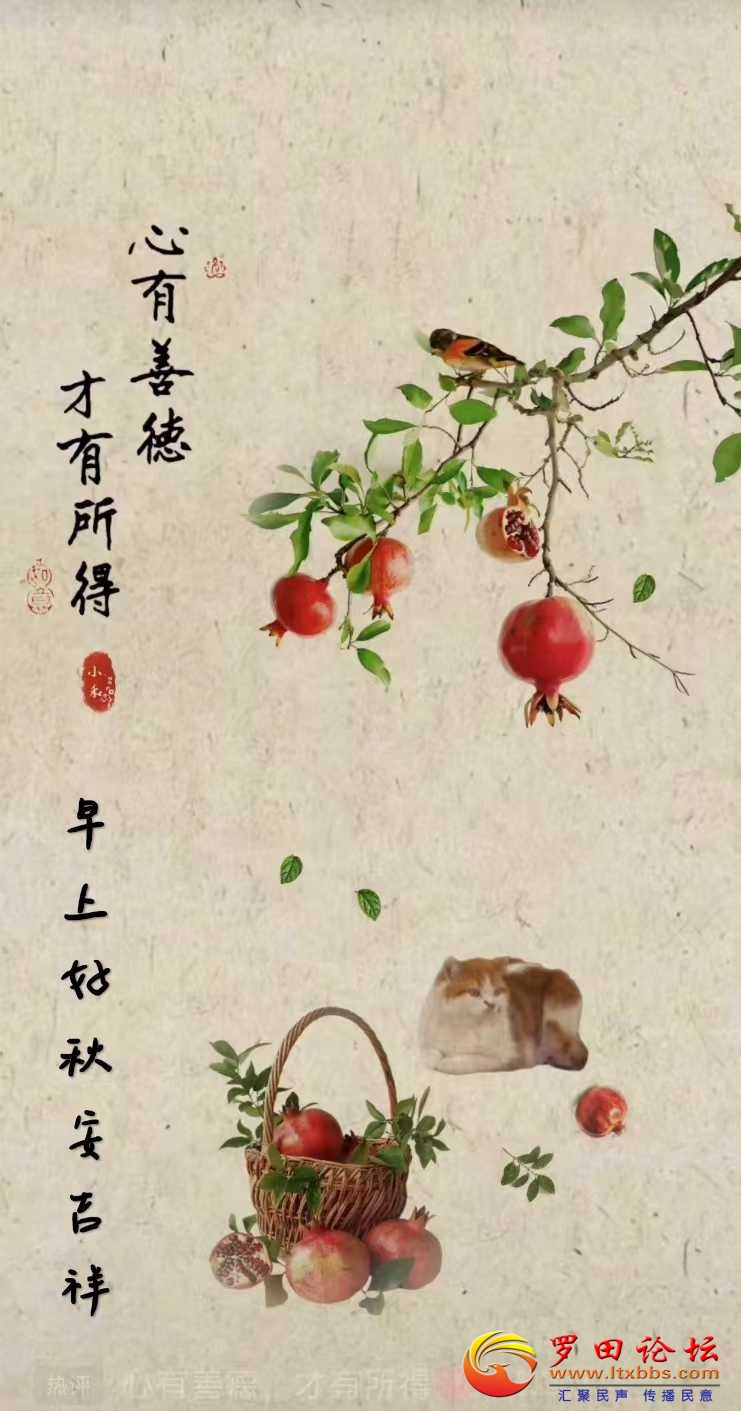 心有善德
才有所得
小和
早上好秋安吉祥
热评
心有善德，才有所得
罗田论坛
www.ltxbbs.com
汇聚民声 传播民意